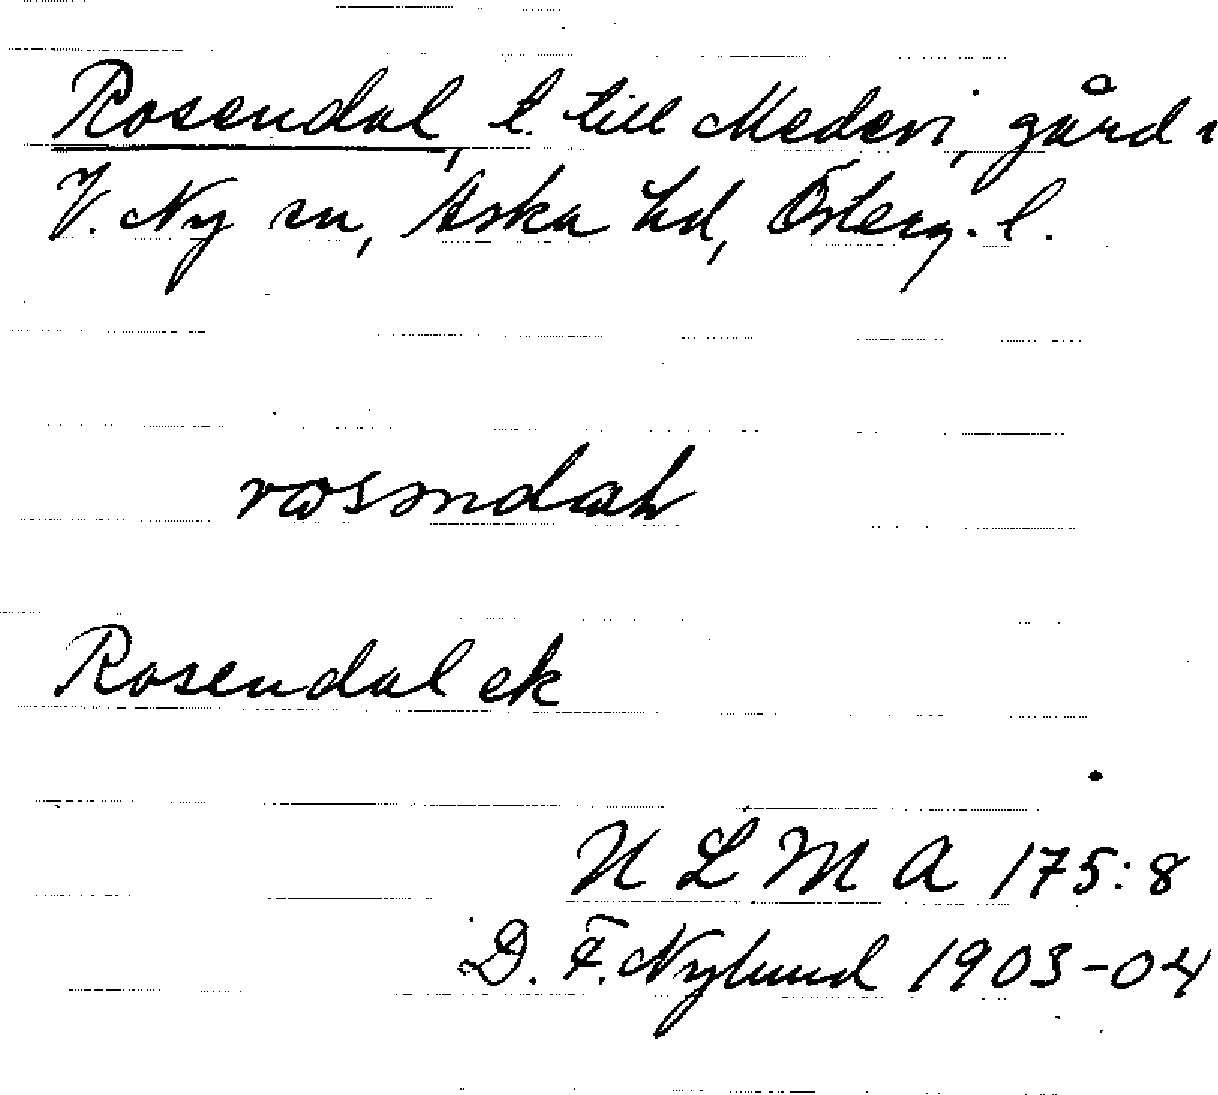 Rosendal, t. till Medevi, gård i
V. Ny sn, Aska hd, Österg. l.
Rosendal ek
N L M A 175:8
D. F. Nylund 1903-04